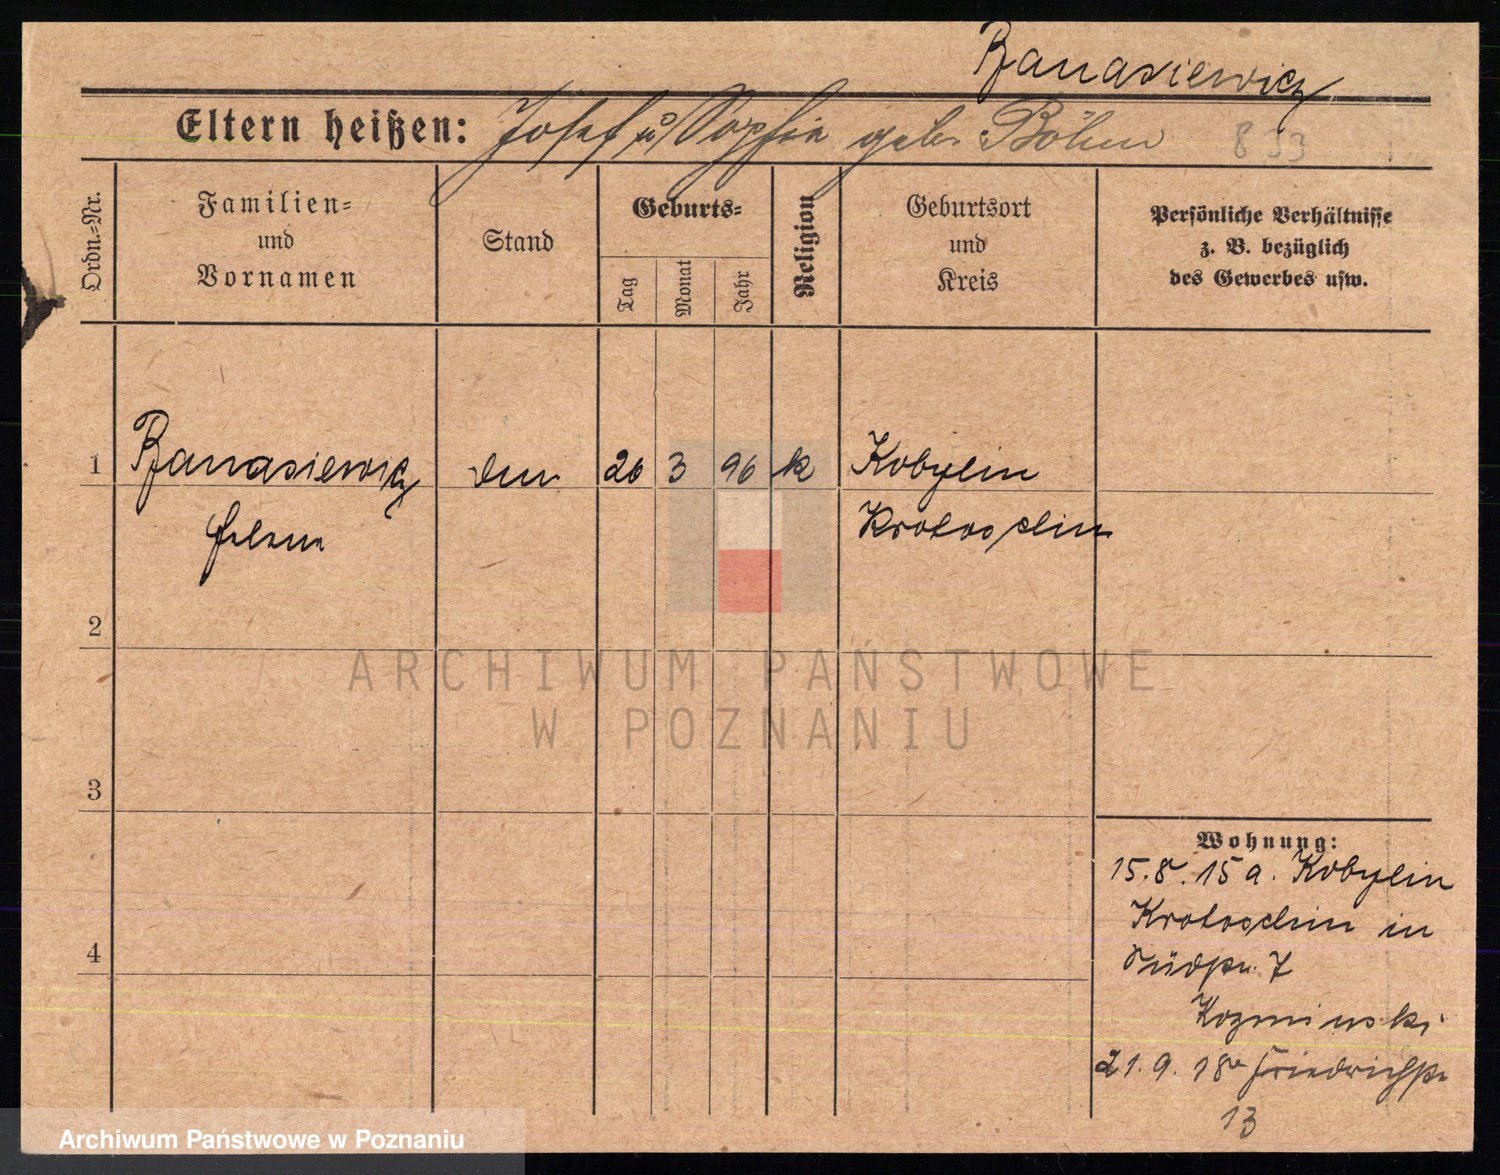 Banasiewicz
Eltern heißen: Josef u Sophie geb. Böhm 833
Ordn.-Nr.
Familien-
und
Vornamen
Stand
Geburts-
Tag
Monat
Jahr
Religion
Geburtsort
und
Kreis
Persönliche Verhältnisse
z. B. bezüglich
des Gewerbes usw.
1 Banasiewicz 26 3 96 k Kobylin
Krotoschin
2
ARCHIWUM PAŃSTWOWE
W POZNANIU
3
Wohnung:
15.8.15 a. Kobylin
Krotoschin in
4
Südstr. 7
Kozminski
21.9.18 Friedrichstr
13
Archiwum Państwowe w Poznaniu